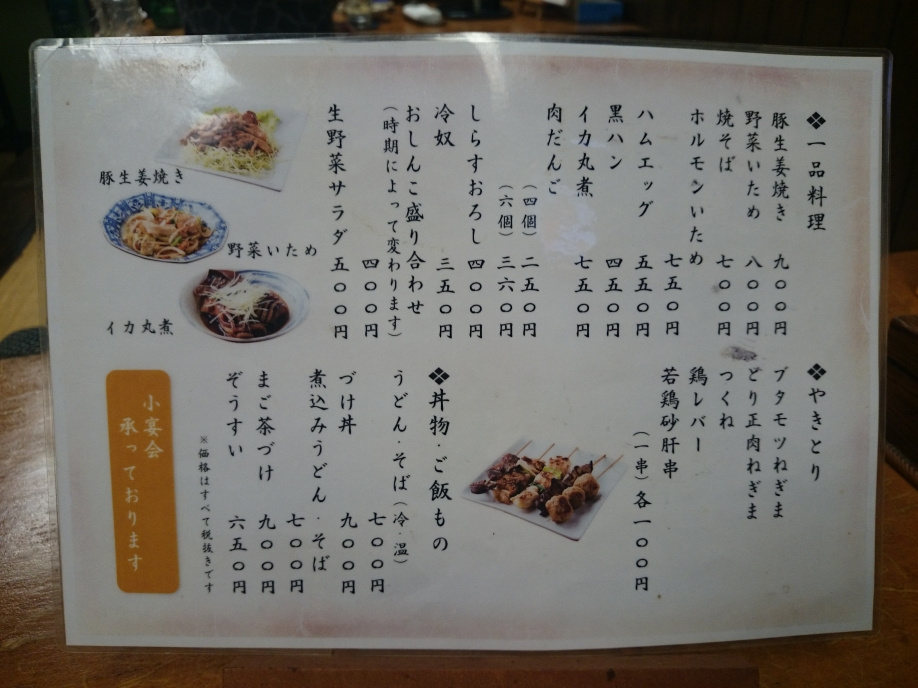 ❖一品料理
豚生姜焼き 九〇〇円
野菜いため 八〇〇円
焼そば 七〇〇円
ホルモンいため
七五〇円
ハムエッグ 五五〇円
黒ハン 四五〇円
イカ丸煮 七五〇円
肉だんご
(四個) 二五〇円
(六個) 三六〇円
しらすおろし 四〇〇円
冷奴 三五〇円
おしんこ盛り合わせ
(時期によって変わります)
四〇〇円
生野菜サラダ 五〇〇円
豚生姜焼き
野菜いため
イカ丸煮
❖やきとり
ブタモツねぎま
とり正肉ねぎま
つくね
鶏レバー
若鶏砂肝串
(一串)各一〇〇円
❖丼物・ご飯もの
うどん・そば(冷・温)
七〇〇円
づけ丼 九〇〇円
煮込みうどん・そば
七〇〇円
まご茶づけ 九〇〇円
ぞうすい 六五〇円
※価格はすべて税抜きです
小宴会
承っております